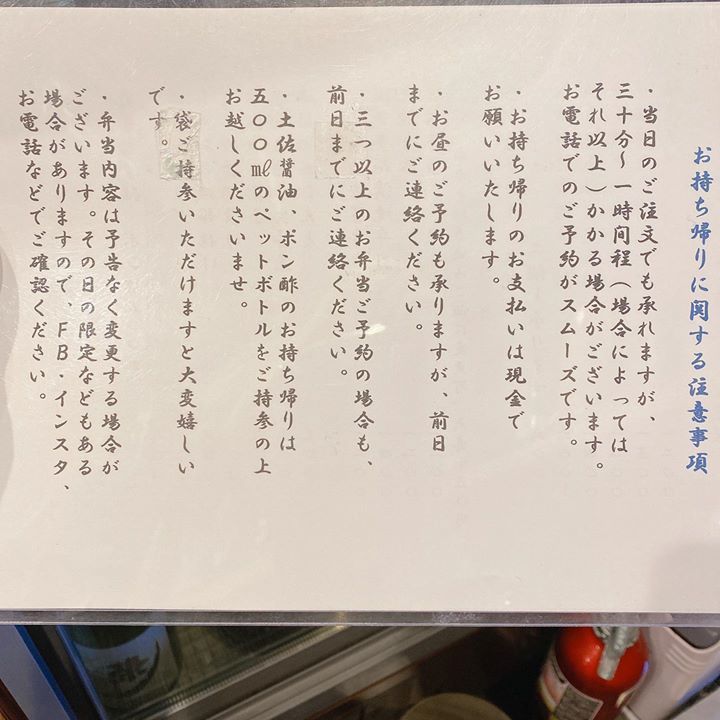 お持ち帰りに関する注意事項
・当日のご注文でも承れますが、
三十分～一時間程(場合によっては
それ以上)かかる場合がございます。
お電話でのご予約がスムーズです。
・お持ち帰りのお支払いは現金で
お願いいたします。
・お昼のご予約も承りますが、前日
までにご連絡ください。
・三つ以上のお弁当ご予約の場合も、
前日までにご連絡ください。
・土佐醤油、ポン酢のお持ち帰りは
五〇〇㎖のペットボトルをご持参の上
お越しくださいませ。
・袋ご持参いただけますと大変嬉しい
です。
・弁当内容は予告なく変更する場合が
ございます。その日の限定などもある
場合がありますので、FB・インスタ、
お電話などでご確認ください。